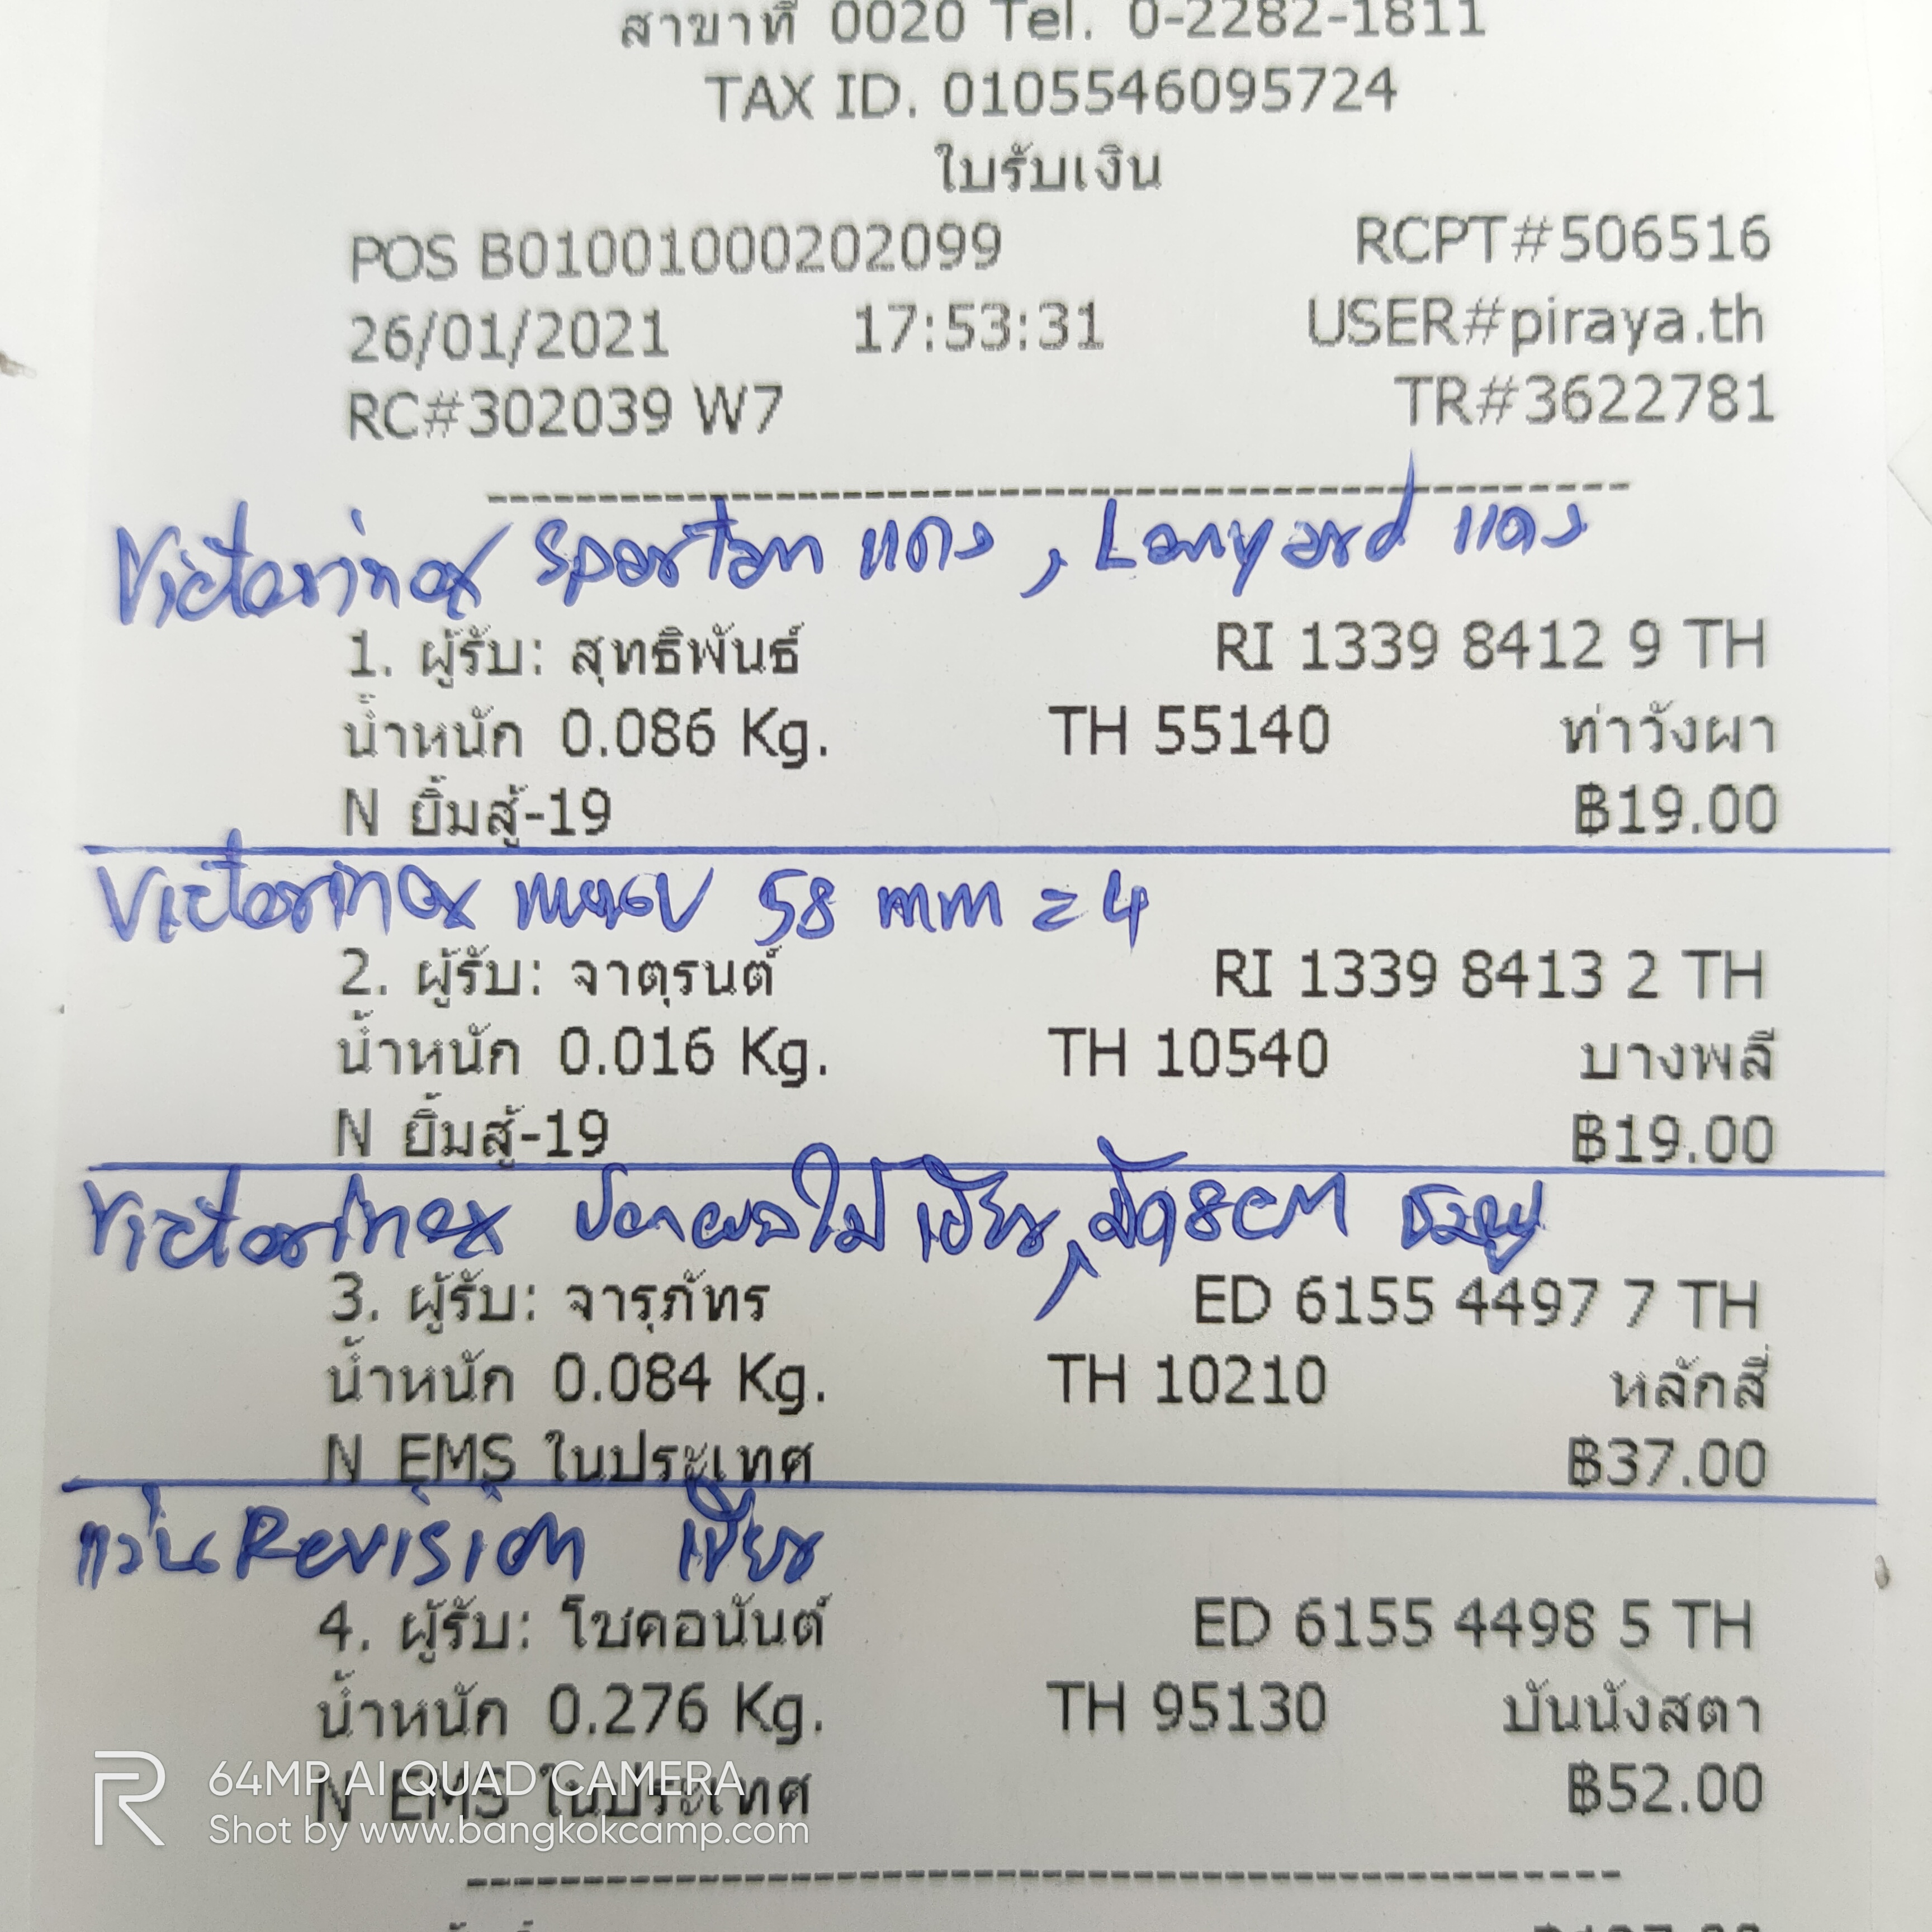 สาขาที่ 0020 Tel. 0-2282-1811
TAX ID. 0105546095724
ใบรับเงิน
POS B01001000202099 RCPT#506516
26/01/2021 17:53:31 USER#piraya.th
RC#302039 W7 TR#3622781
Victorinox Spartan แดง , Lanyard แดง
1. ผู้รับ: สุทธิพันธ์ RI 1339 8412 9 TH
น้ำหนัก 0.086 Kg. TH 55140 ท่าวังผา
N ยิ้มสู้-19 ฿19.00
Victorinox แหนบ 58 mm = 4
2. ผู้รับ: จาตุรนต์ RI 1339 8413 2 TH
น้ำหนัก 0.016 Kg. TH 10540 บางพลี
N ยิ้มสู้-19 ฿19.00
Victorinox ปอกผลไม้ เขียว, มีด 8cm ชมพู
3. ผู้รับ: จารุภัทร ED 6155 4497 7 TH
น้ำหนัก 0.084 Kg. TH 10210 หลักสี่
N EMS ในประเทศ ฿37.00
แว่น Revision เขียว
4. ผู้รับ: โชคอนันต์ ED 6155 4498 5 TH
น้ำหนัก 0.276 Kg. TH 95130 บันนังสตา
N EMS ในประเทศ ฿52.00
R 64MP AI QUAD CAMERA
Shot by www.bangkokcamp.com